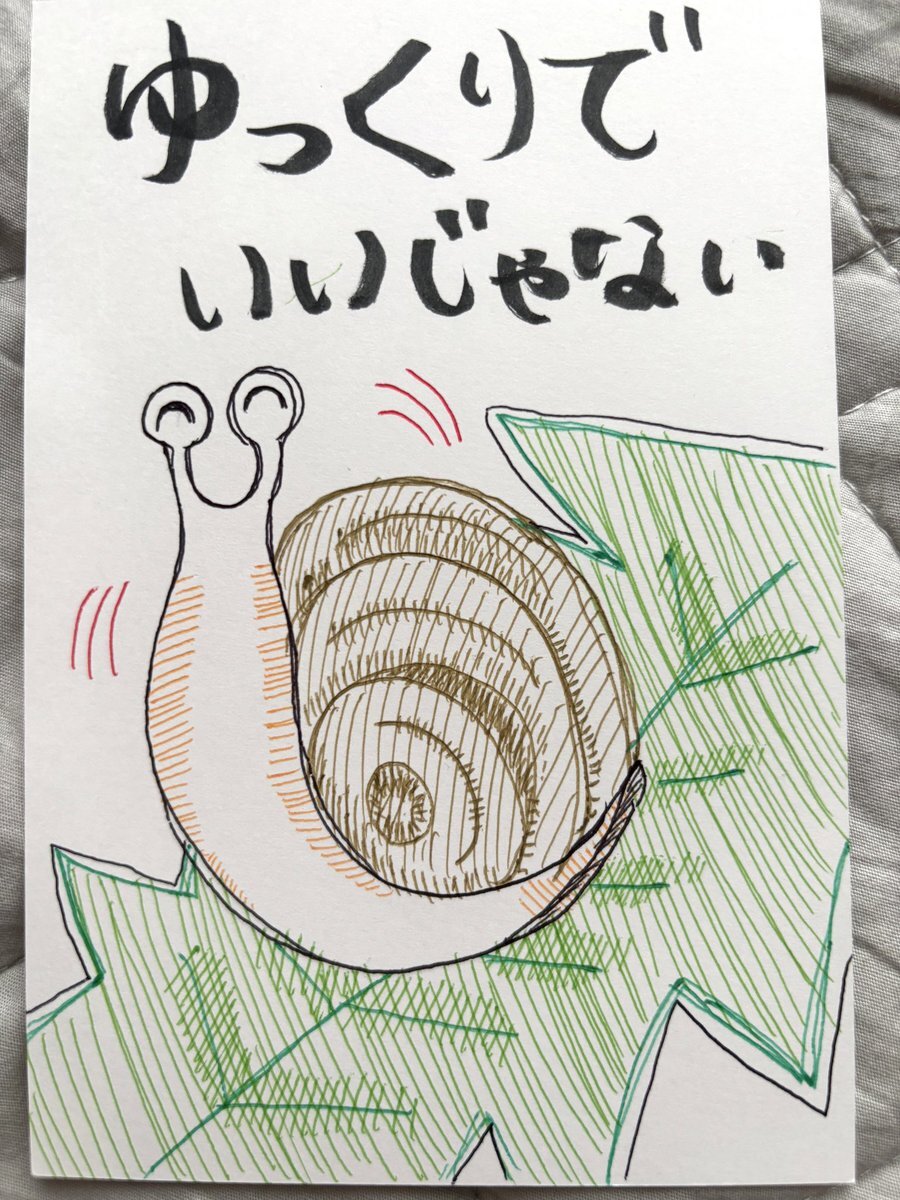 ゆっくりで
いいじゃない